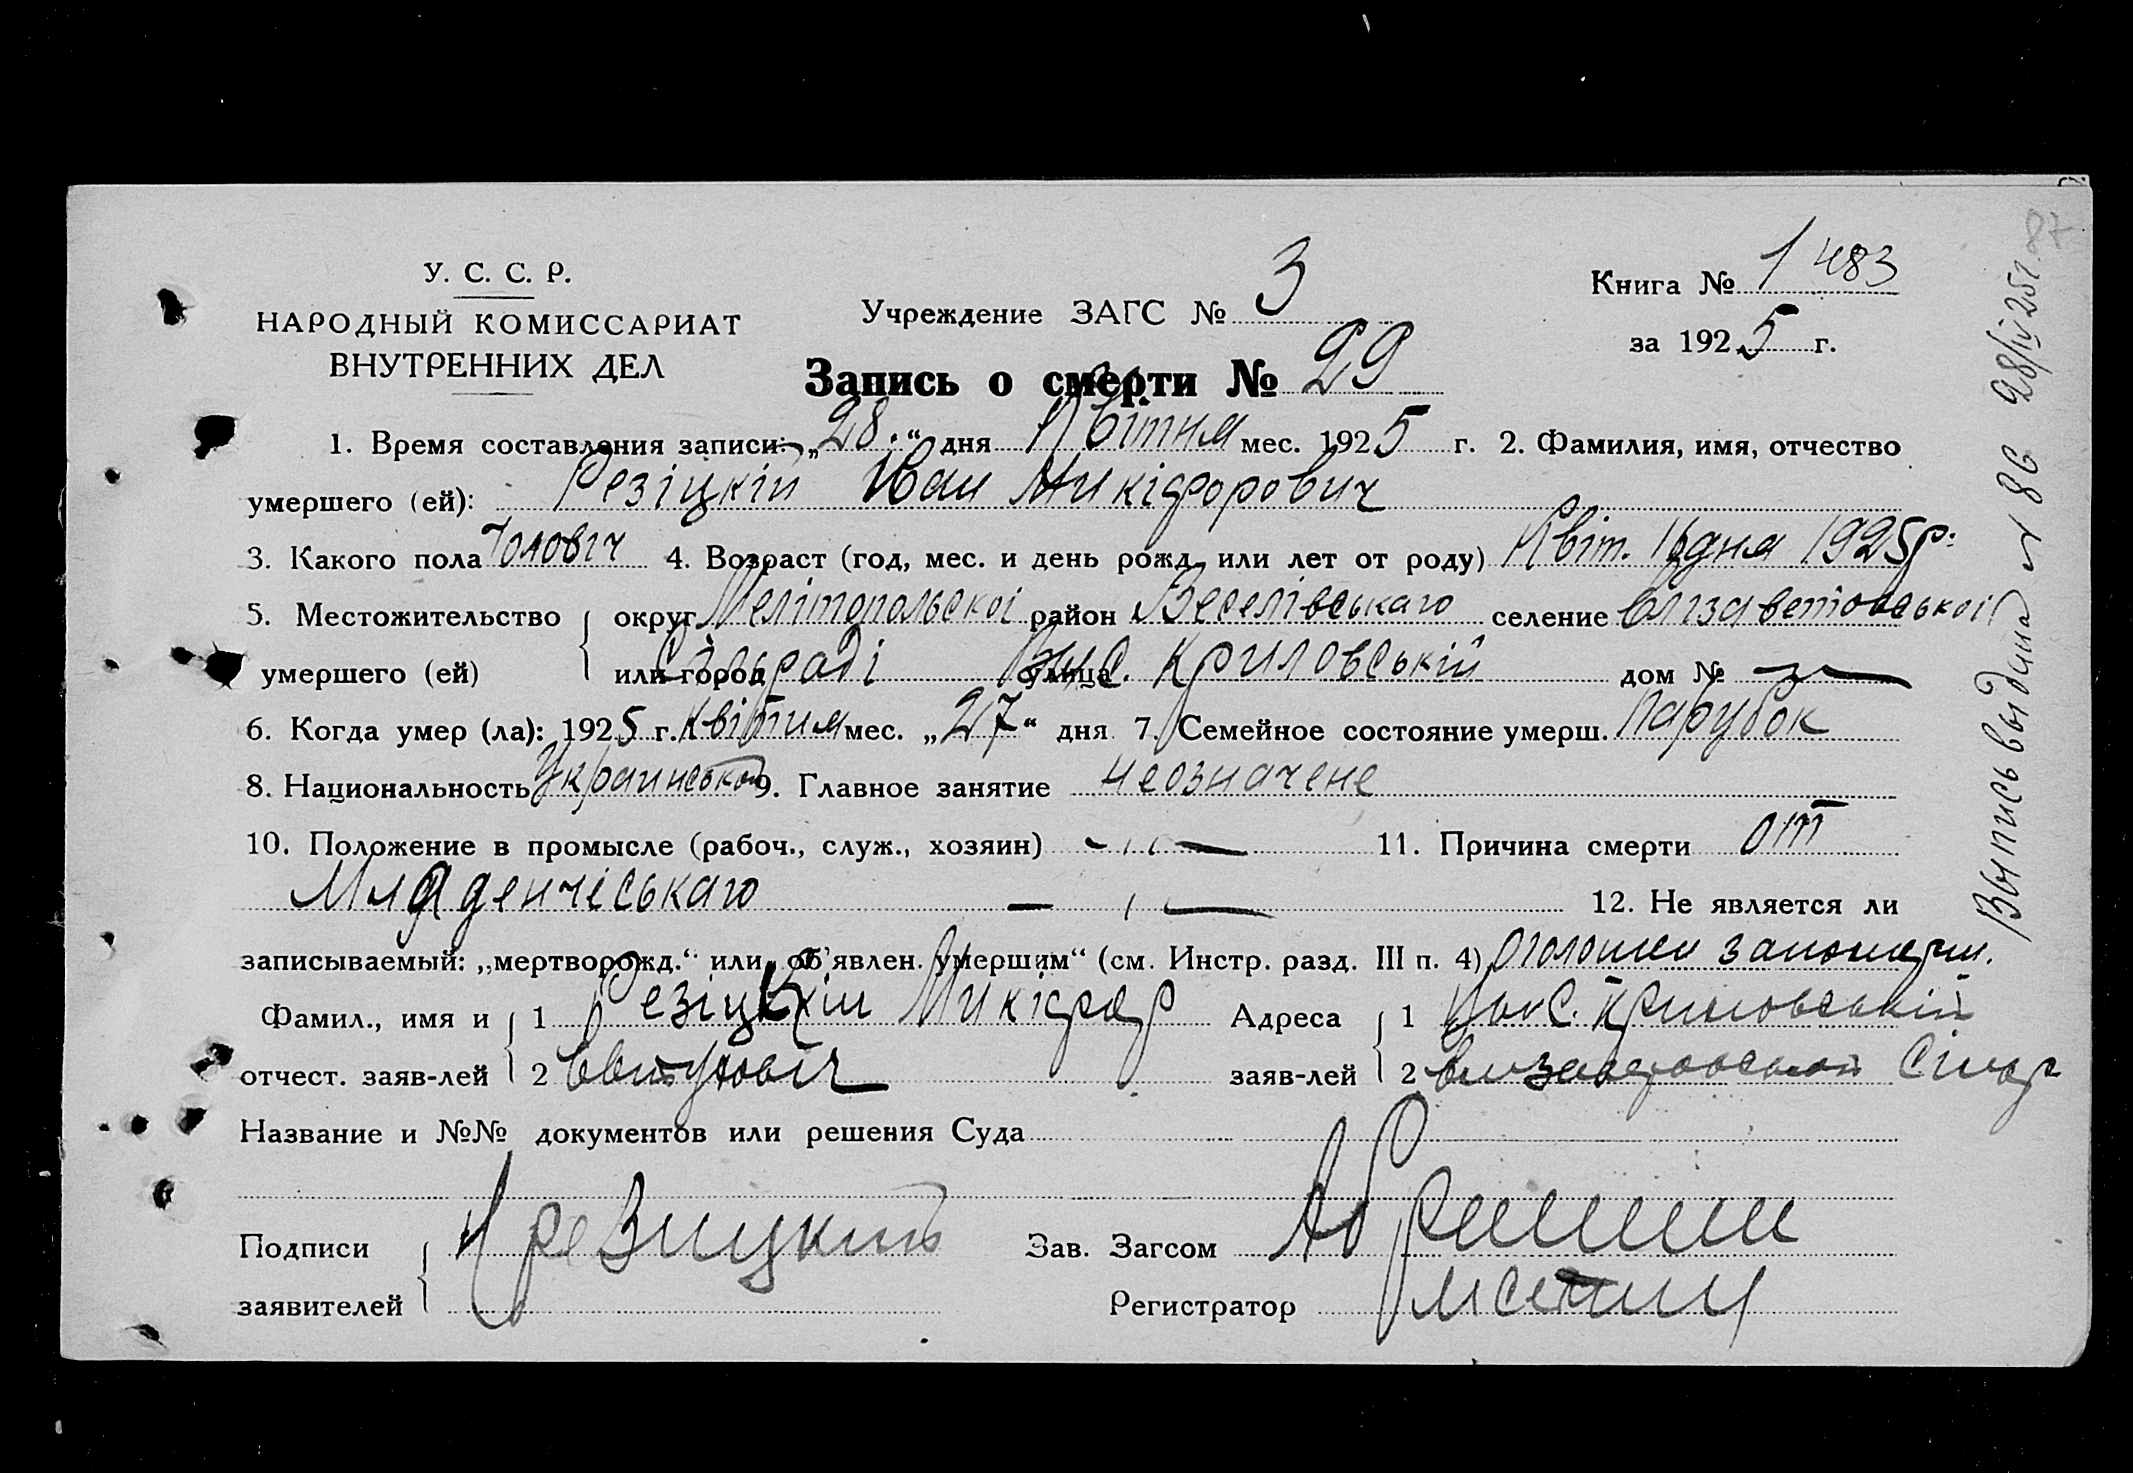 У. С. С. Р.
НАРОДНЫЙ КОМИССАРИАТ
ВНУТРЕННИХ ДЕЛ
Учреждение ЗАГС № 3
Книга № 1 483
за 1925 г.
Запись о смерти № 29
1. Время составления записи: „28.“ дня Квітня мес. 1925 г. 2. Фамилия, имя, отчество
умершего (ей): Резіцкій Иван Микіфорович
3. Какого пола Чоловіч 4. Возраст (год, мес. и день рожд. или лет от роду) Квіт. 16 дня 1925р.
5. Местожительство округ Мелітопольскоі район Веселівськаго селение Єлізаветовськоі
умершего (ей) или город Сільраді улица Криловській дом № —
6. Когда умер (ла): 1925 г. Квітня мес. „27“ дня 7. Семейное состояние умерш. Парубок
8. Национальность Украинськои 9. Главное занятие неозначене
10. Положение в промысле (рабоч., служ., хозяин) — „ — 11. Причина смерти от
Младенчіськаго — „ — 12. Не является ли
записываемый: „мертворожд.“ или „об’явлен. умершим“ (см. Инстр. разд. III п. 4)
Фамил., имя и 1 Резіцкій Микіфор Адреса 1 Криловській
отчест. заяв-лей 2 заяв-лей 2
Название и №№ документов или решения Суда
Подписи Резицкий Зав. Загсом
заявителей Регистратор
Выпись выдана № 86 28/IV 25г.
87